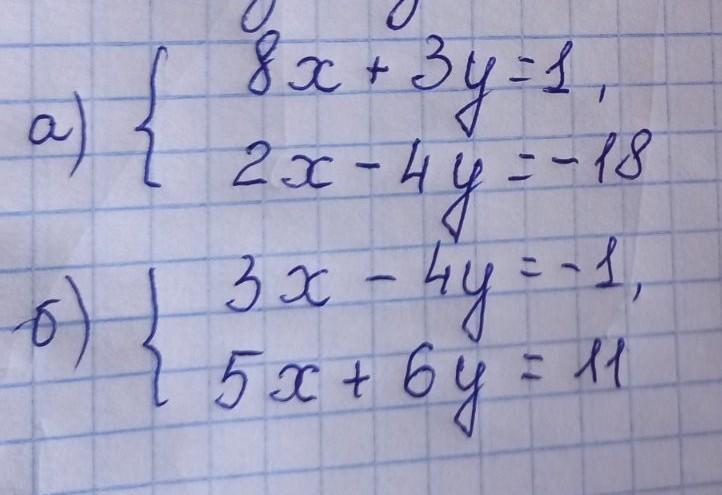 а) { 8x + 3y = 1,
2x - 4y = -18
б) { 3x - 4y = -1,
5x + 6y = 11